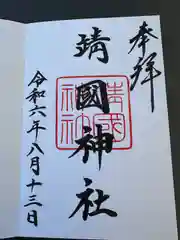 奉拝
靖國神社
靖國神社
令和六年八月十三日